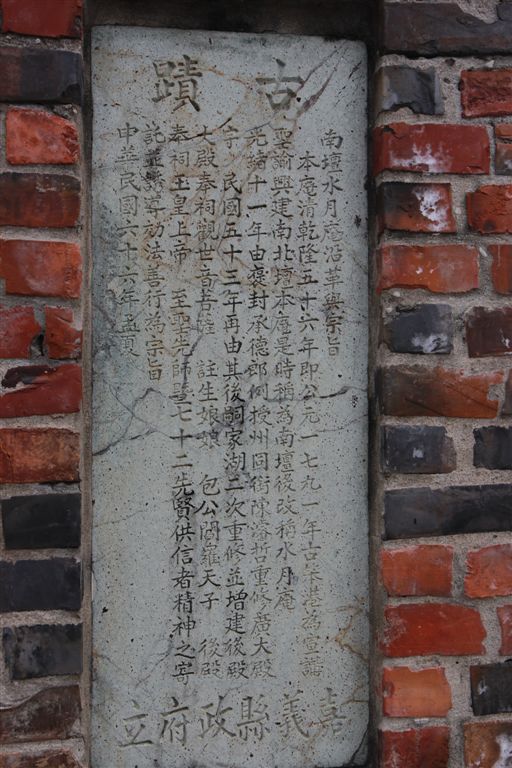 古蹟
南壇水月庵沿革與宗旨
本庵清乾隆五十六年即公元一七九一年古笨港為宣講
聖諭興建南北壇本庵是時稱為南壇後改稱水月庵
光緒十一年由褒封承德郎何授州同銜陳濬哲重修廣大殿
宇民國五十三年再由其後嗣家湖二次重修並增建後殿
大殿奉祠觀世音菩薩 註生娘娘 包公閻羅天子 後殿
奉祠玉皇上帝 至聖先師暨七十二先賢供信者精神之寄
託並誘導勸法善行為宗旨
中華民國六十六年孟夏
嘉義縣政府立